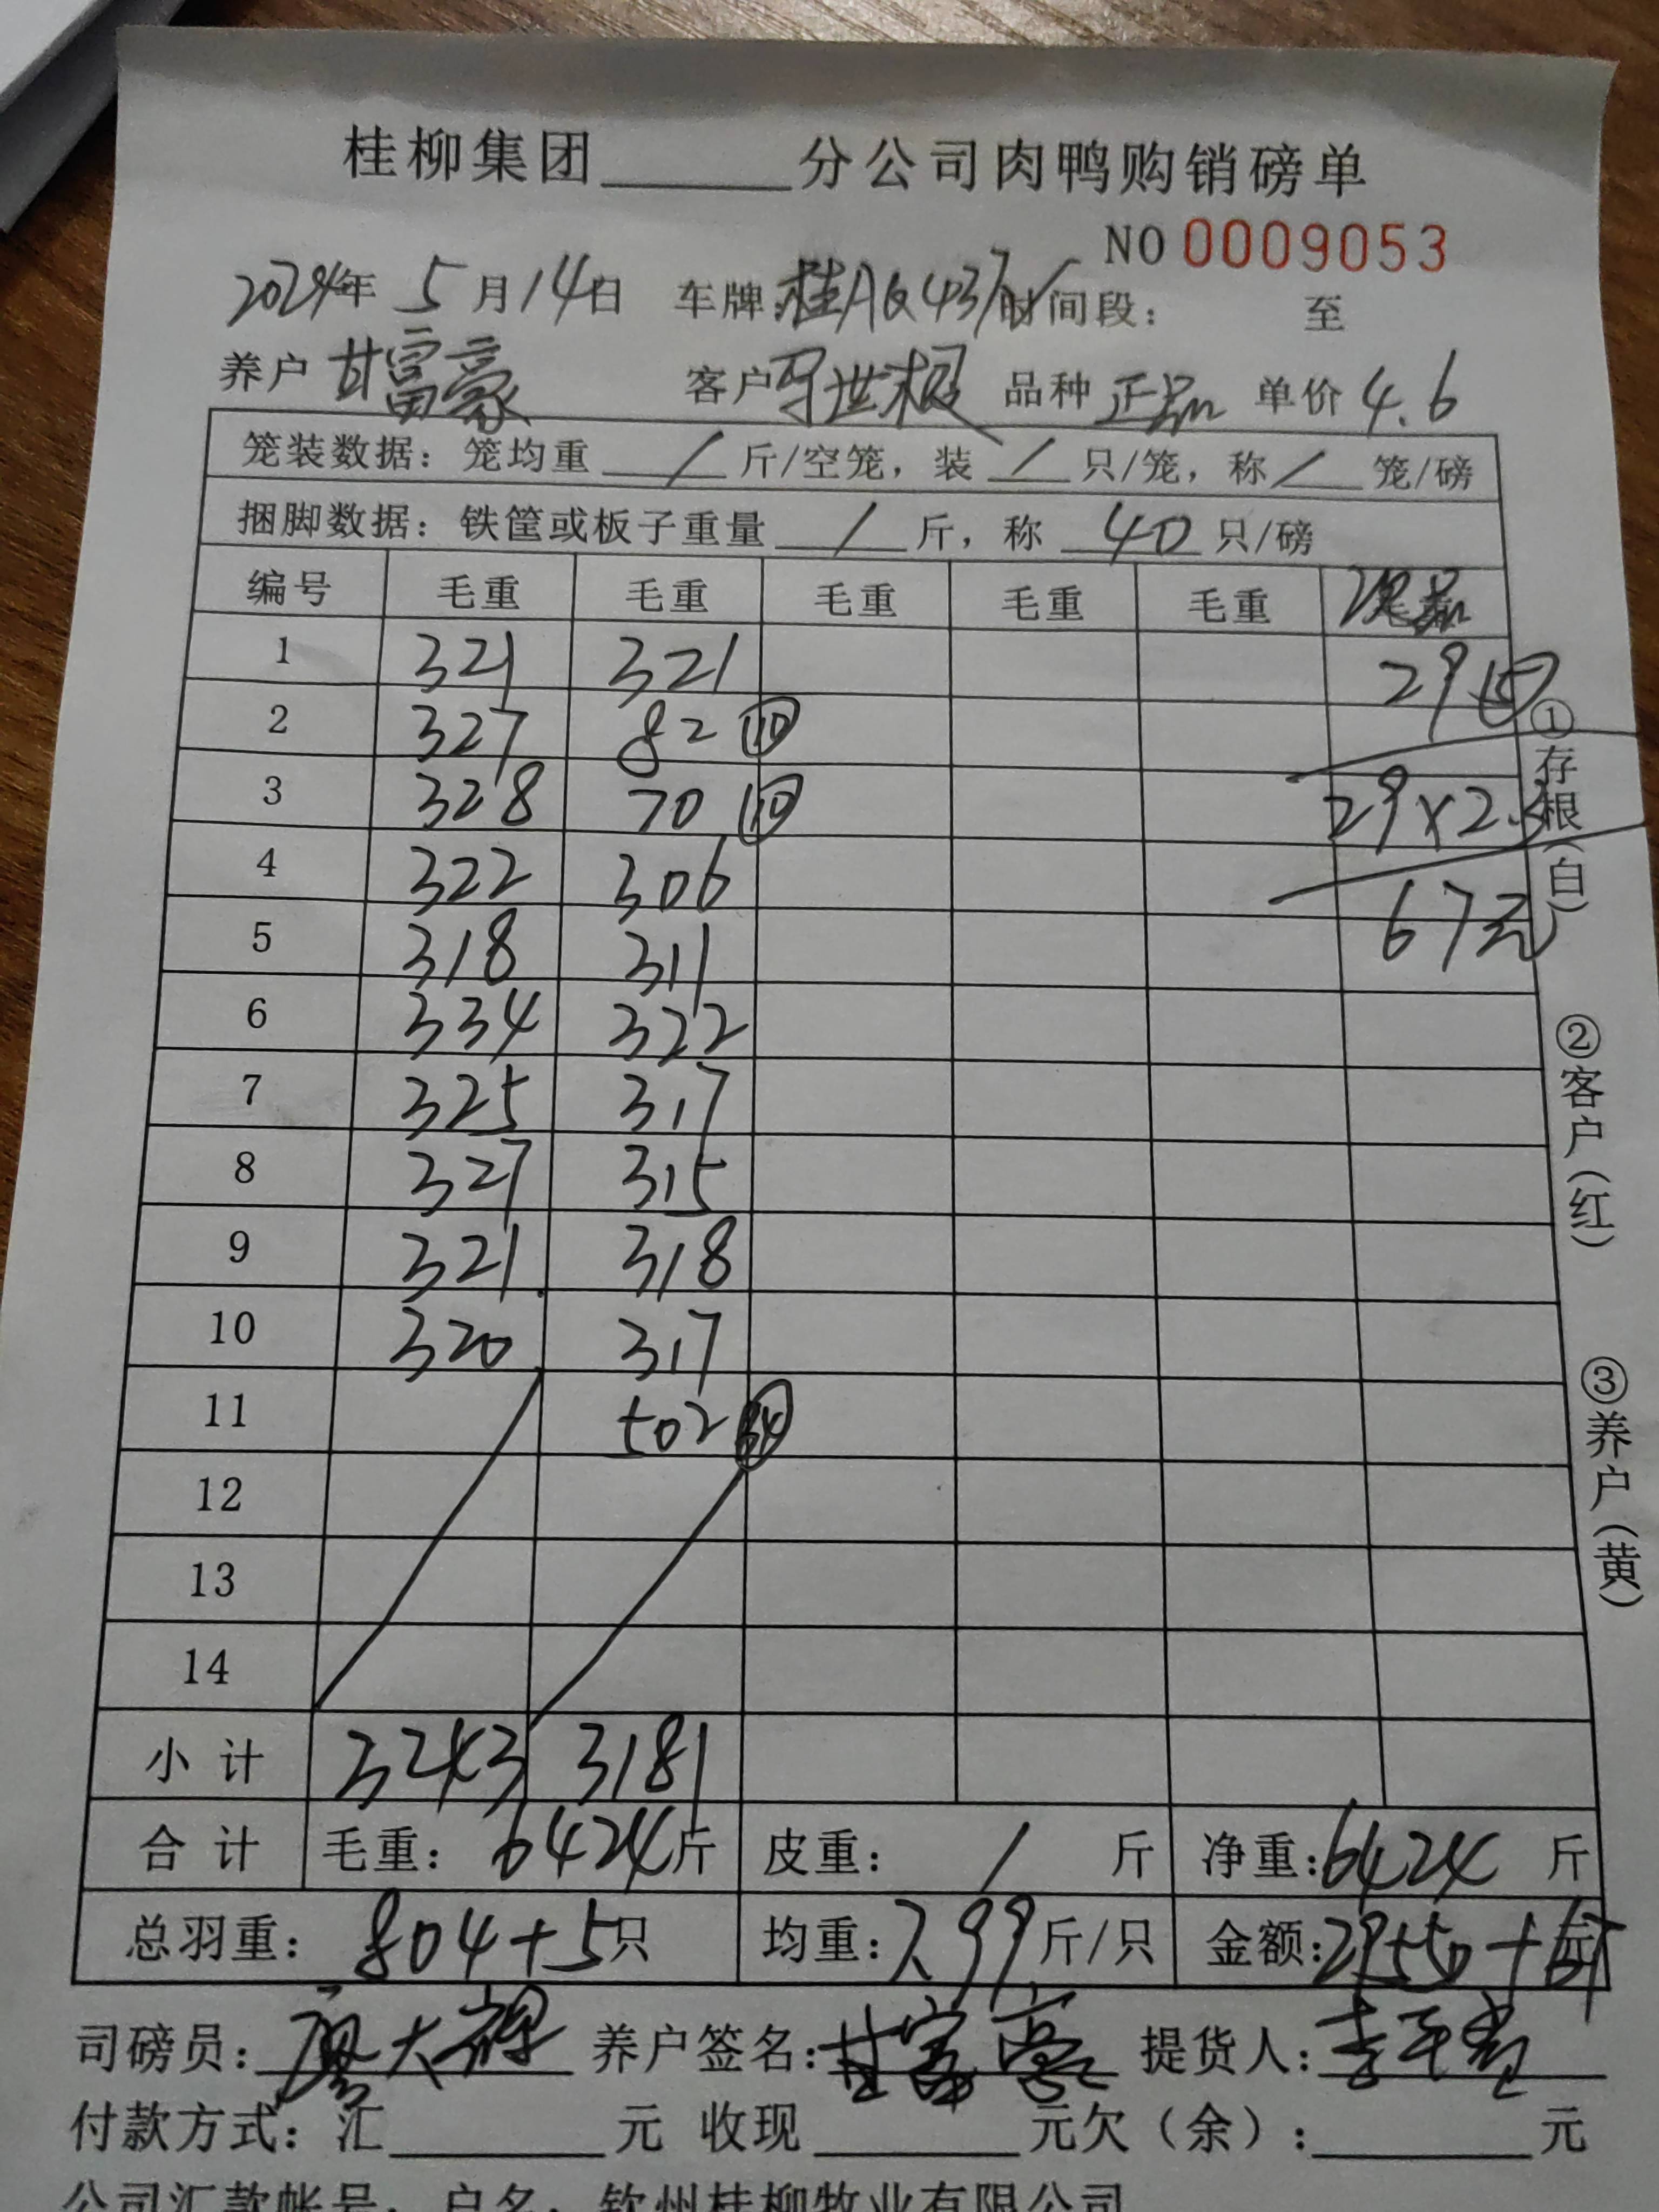 桂柳集团______分公司肉鸭购销磅单
NO 0009053
2024年 5月14日 车牌:桂A 时间段: 至
养户 甘富豪 客户 世 品种 正品 单价 4.6
笼装数据: 笼均重 / 斤/空笼, 装 / 只/笼, 称 / 笼/磅
捆脚数据: 铁筐或板子重量 / 斤, 称 40 只/磅
编号 毛重 毛重 毛重 毛重 毛重 次品
1 321 321 29 ⑤
2 327 82 ⑩
3 328 70 ⑩ 29×2.3
4 322 306 67元
5 318 311
6 334 322
7 325 317
8 327 315
9 321 318
10 320 317
11 502
12
13
14
小计 3243 3181
合计 毛重: 6424斤 皮重: / 斤 净重: 6424 斤
总羽重: 804+5只 均重: 7.99斤/只 金额: 29550+67元
司磅员: 廖大 养户签名: 甘富豪 提货人: 李
付款方式: 汇______元 收现______元欠(余):______元
公司汇款帐号: 户名: 钦州桂柳牧业有限公司
①存根(白)
②客户(红)
③养户(黄)